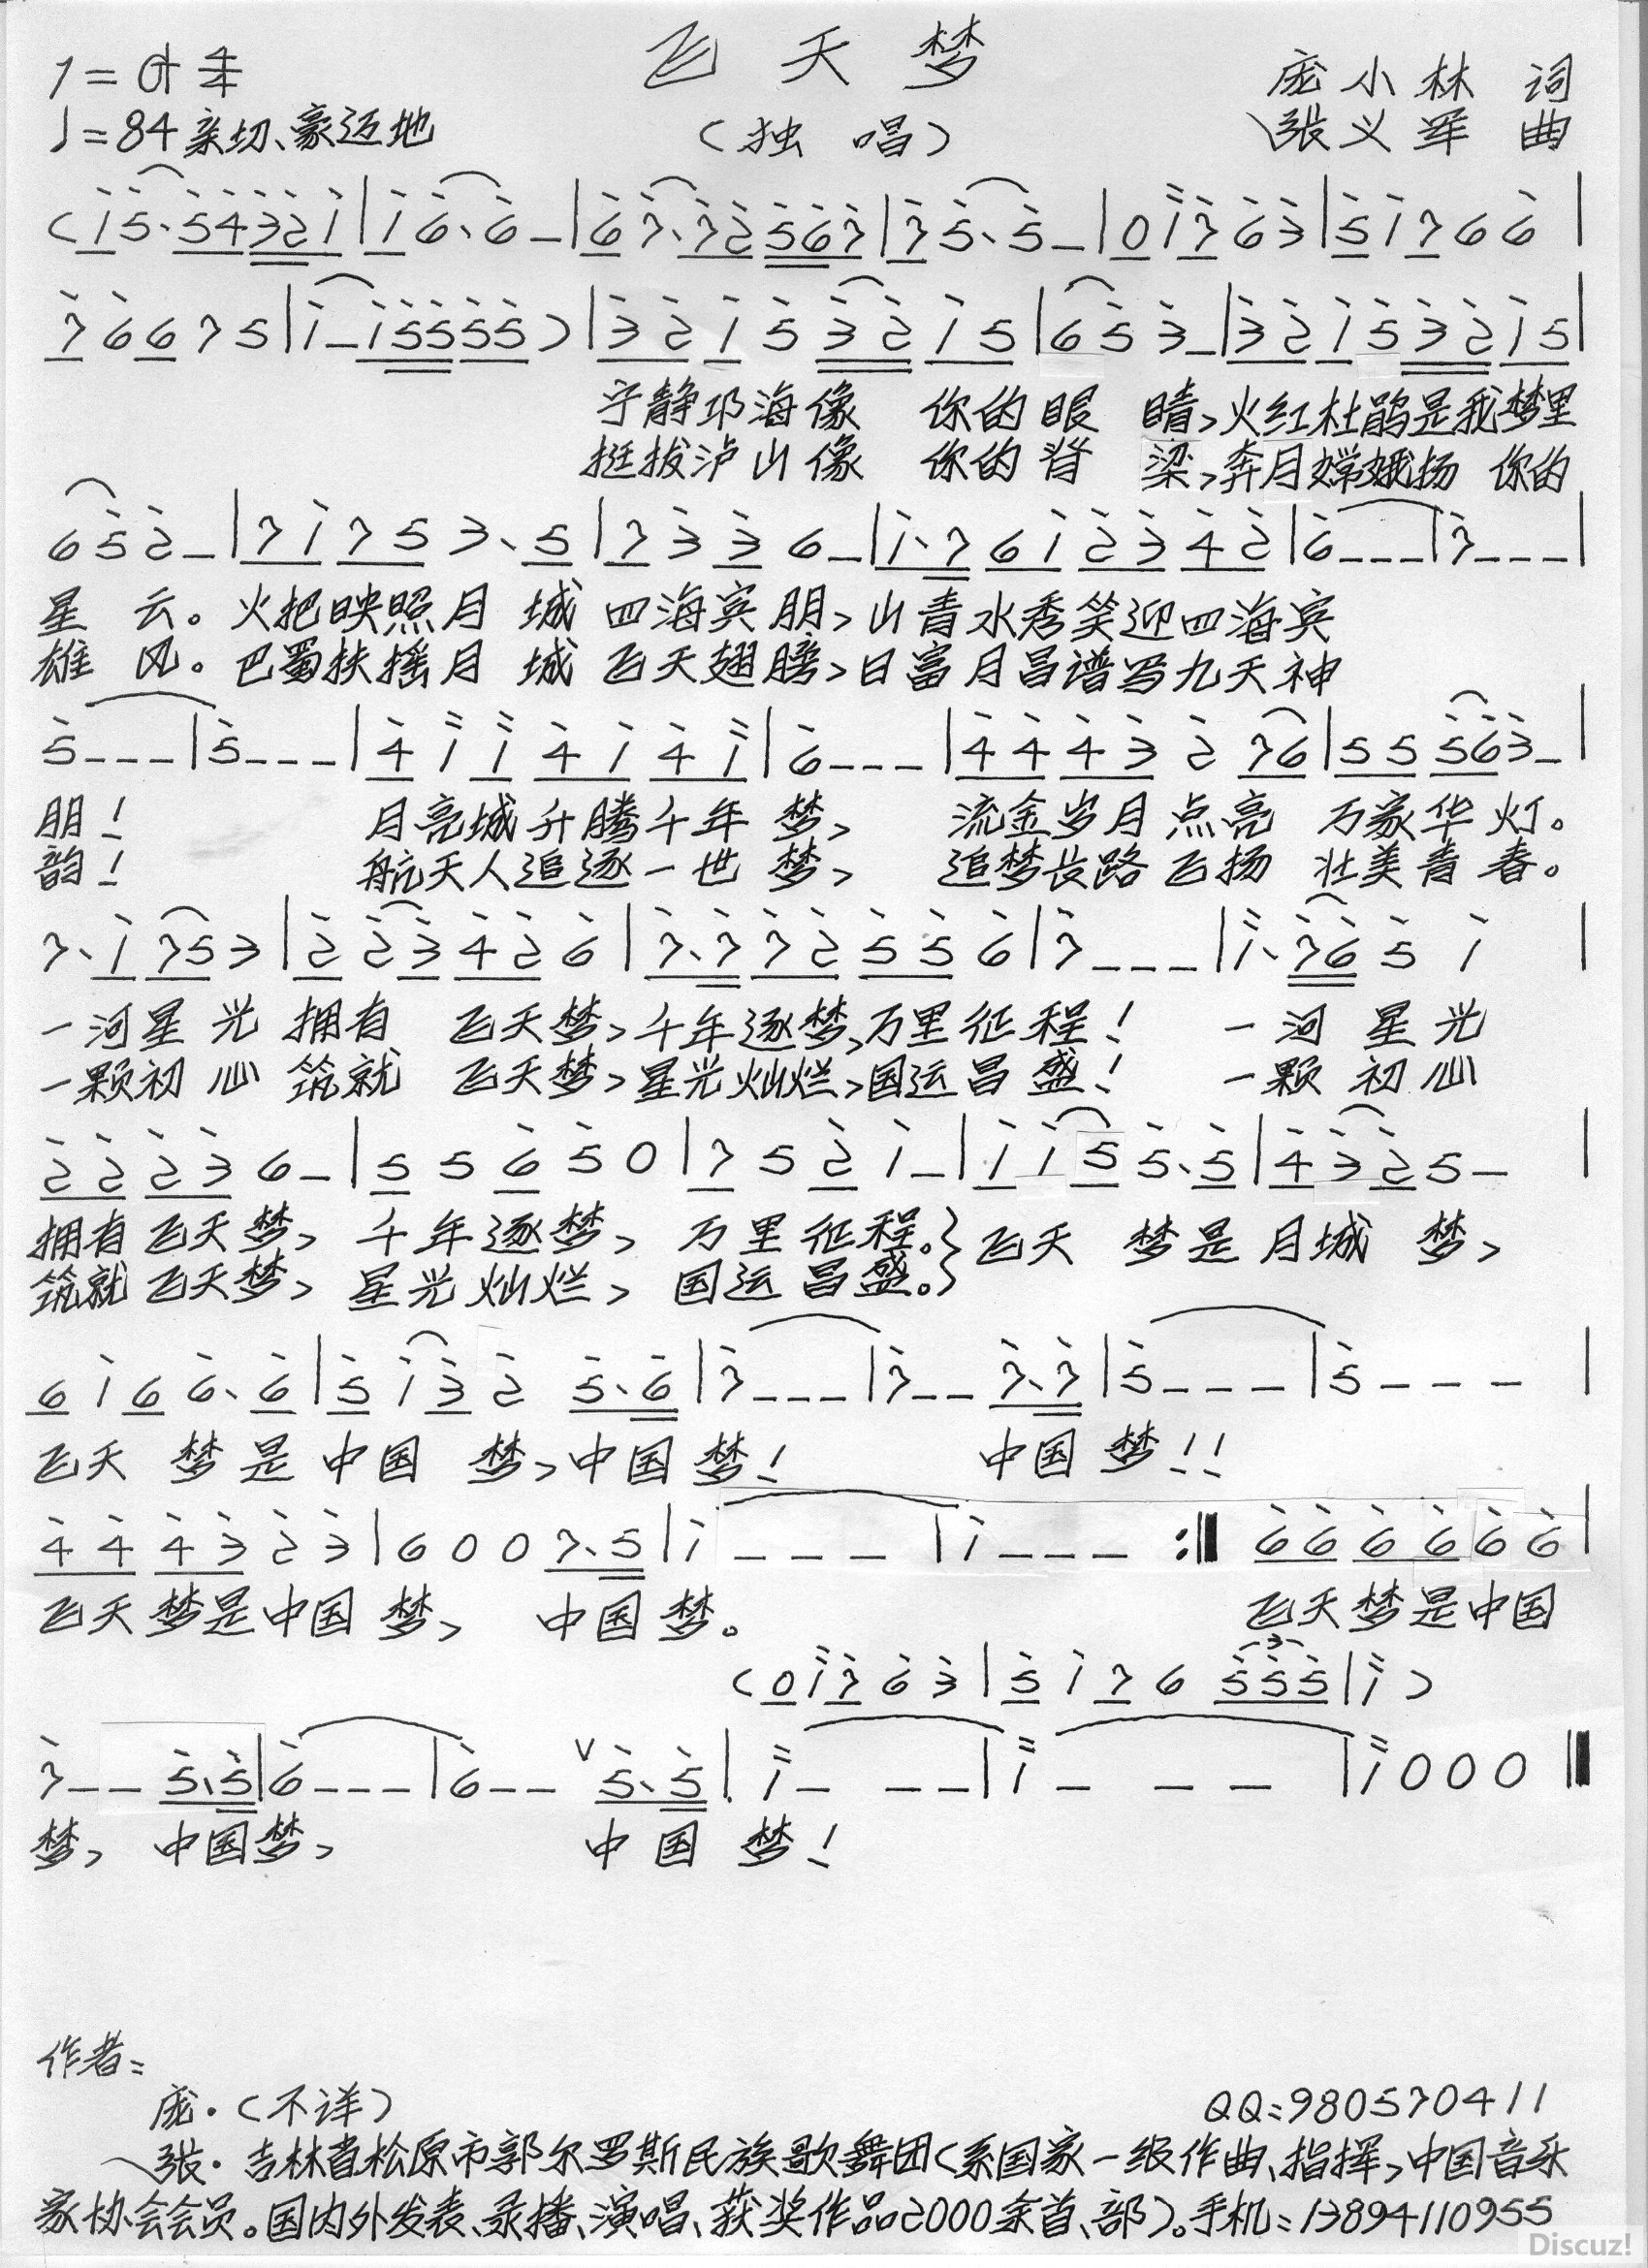 飞天梦
1=G 4/4
庞小林 词
♩=84 亲切、豪迈地
（独 唱）
张义军 曲
(i5·5432i|i6·6-|67·72567|75·5-|0i763|5i766|
76675|i-i55555)|32i532i5|653-|32i532i5|
宁静邛海像 你的眼 睛，火红杜鹃是我梦里
挺拔泸山像 你的脊 梁，奔月嫦娥扬 你的
652-|7i753·5|7336-|i·76i2342|6---|7---|
星 云。火把映照月 城 四海宾朋，山青水秀笑迎四海宾
雄 风。巴蜀扶摇月 城 飞天翅膀，日富月昌谱写九天神
5---|5---|4ii4i4i|6---|4443276|55563-|
朋！ 月亮城升腾千年 梦， 流金岁月点亮 万家华灯。
韵！ 航天人追逐一世 梦， 追梦长路飞扬 壮美青春。
7·i753|223426|7·772556|7---|i·765i|
一河星 光 拥有 飞天梦，千年逐梦、万里征程！ 一河 星光
一颗初 心 筑就 飞天梦，星光灿烂，国运昌盛！ 一颗 初心
22236-|55650|752i-|ii55·5|4325-|
拥有飞天梦， 千年逐梦， 万里征程。}飞天 梦是月城 梦，
筑就飞天梦， 星光灿烂， 国运昌盛。}
6i66·6|5i325·6|7---|7--7·7|5---|5---|
飞天 梦是中国 梦，中国梦！ 中国梦！！
444323|6007·5|i---|i---:‖666666|
飞天梦是中国 梦， 中国梦。 飞天梦是中国
(0i763|5i76555|i)
7--5·5|6---|6--∨5·5|i---|i---|i000‖
梦，中国梦， 中国 梦！
作者：
庞·（不详）
QQ：980570411
张·吉林省松原市郭尔罗斯民族歌舞团（系国家一级作曲、指挥，中国音乐
家协会会员。国内外发表、录播、演唱、获奖作品2000余首、部）。手机：13894110955
Discuz!